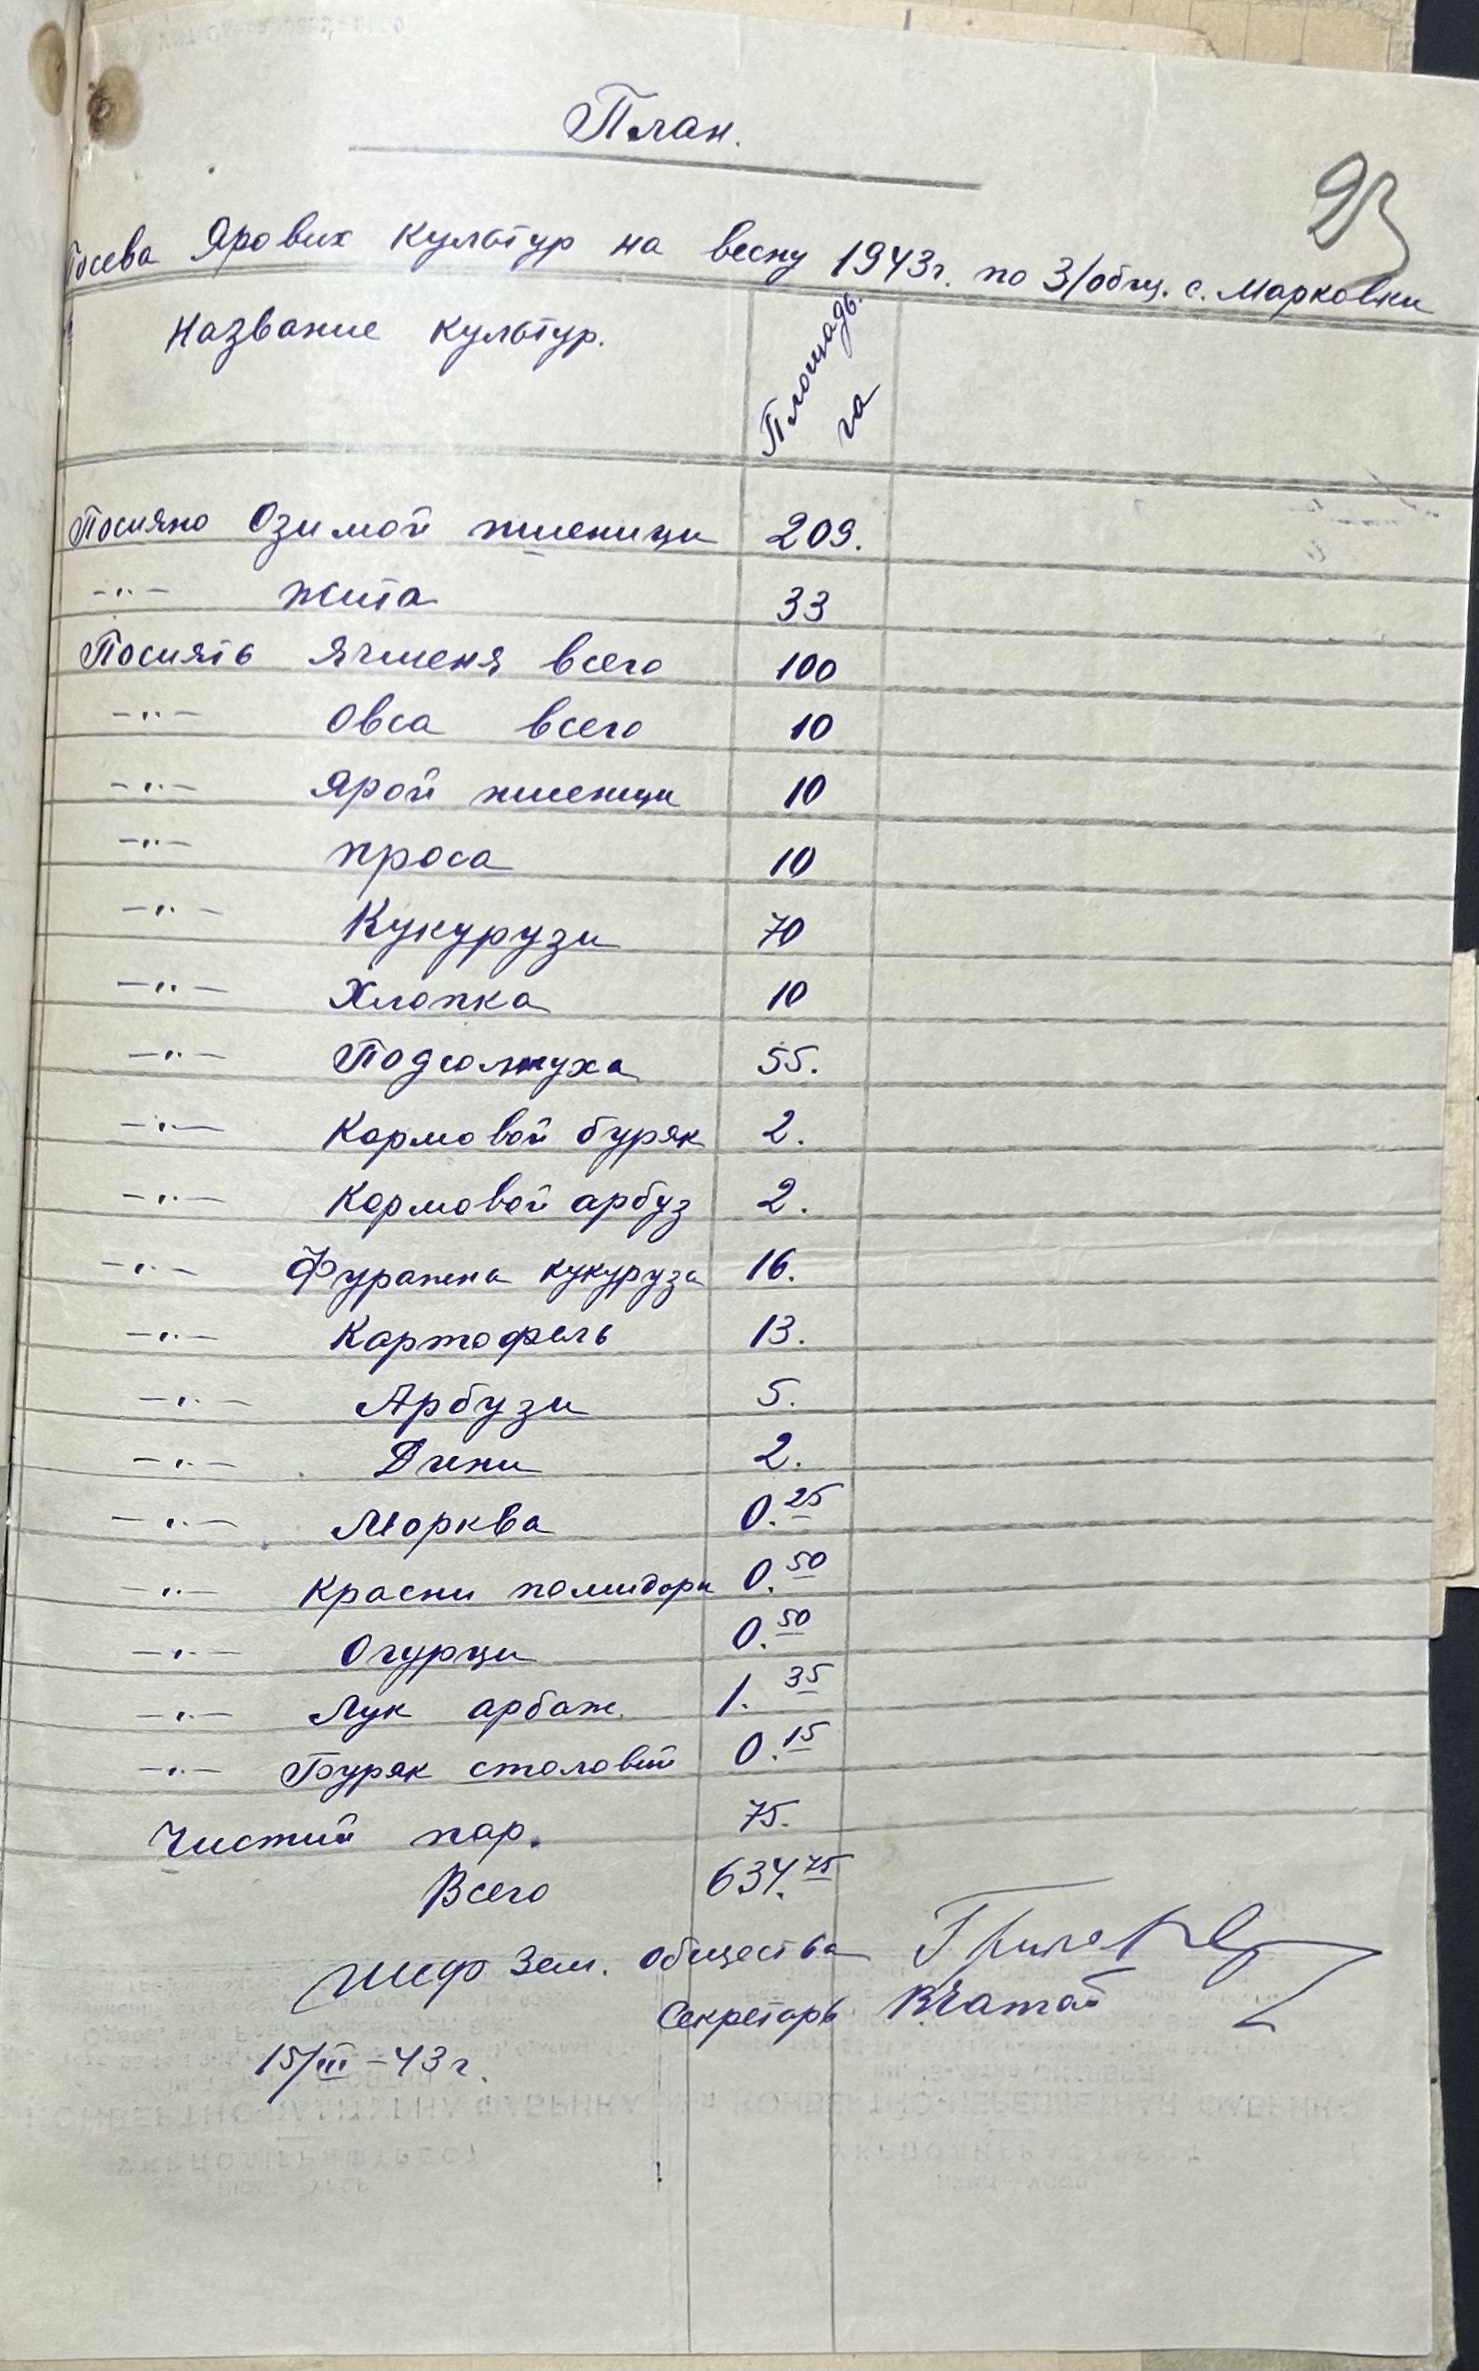 План.
23
Посева Ярових культур на весну 1943г. по З/общ. с. Марковки
Название культур.
Площадь.
га
Посияно Озимой пшеници 209.
-"- жита 33
Посиять Ячменя всего 100
-"- Овса всего 10
-"- Ярой пшеници 10
-"- проса 10
-"- Кукурузи 70
-"- Хлопка 10
-"- Подсолнуха 55.
-"- Кормовой буряк 2.
-"- Кормовой арбуз 2.
-"- Фуражна кукуруза 16.
-"- Картофель 13.
-"- Арбузи 5.
-"- Дини 2.
-"- Морква 0.25
-"- Красни помидори 0.50
-"- Огурци 0.50
-"- Лук арбаж. 1.35
-"- Буряк столовий 0.15
Чистий пар. 75.
Всего 634.75
Шеф Зем. Общества
Секретарь
15/III-43г.